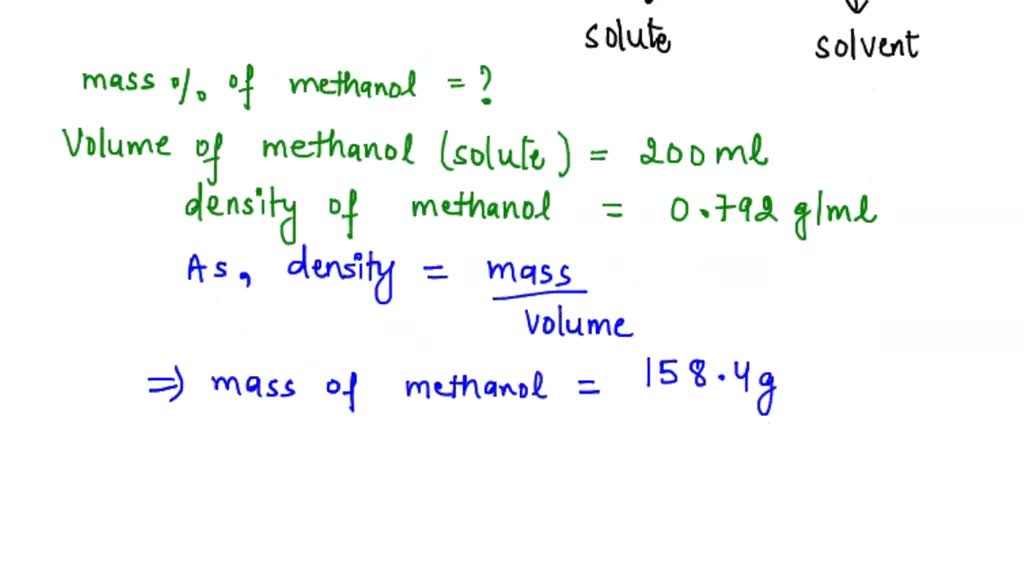 solute solvent
mass % of methanol = ?
Volume of methanol (solute) = 200 ml
density of methanol = 0.792 g/ml
As, density = mass
volume
⇒ mass of methanol = 158.4g